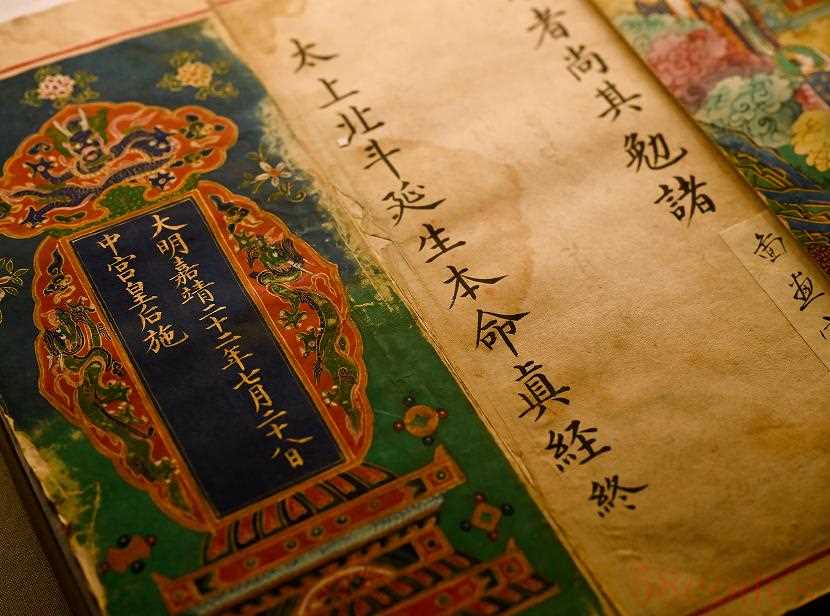 者尚其勉諸
太上北斗延生本命眞経終
大明嘉靖二十二年七月二十八日
中宮皇后施